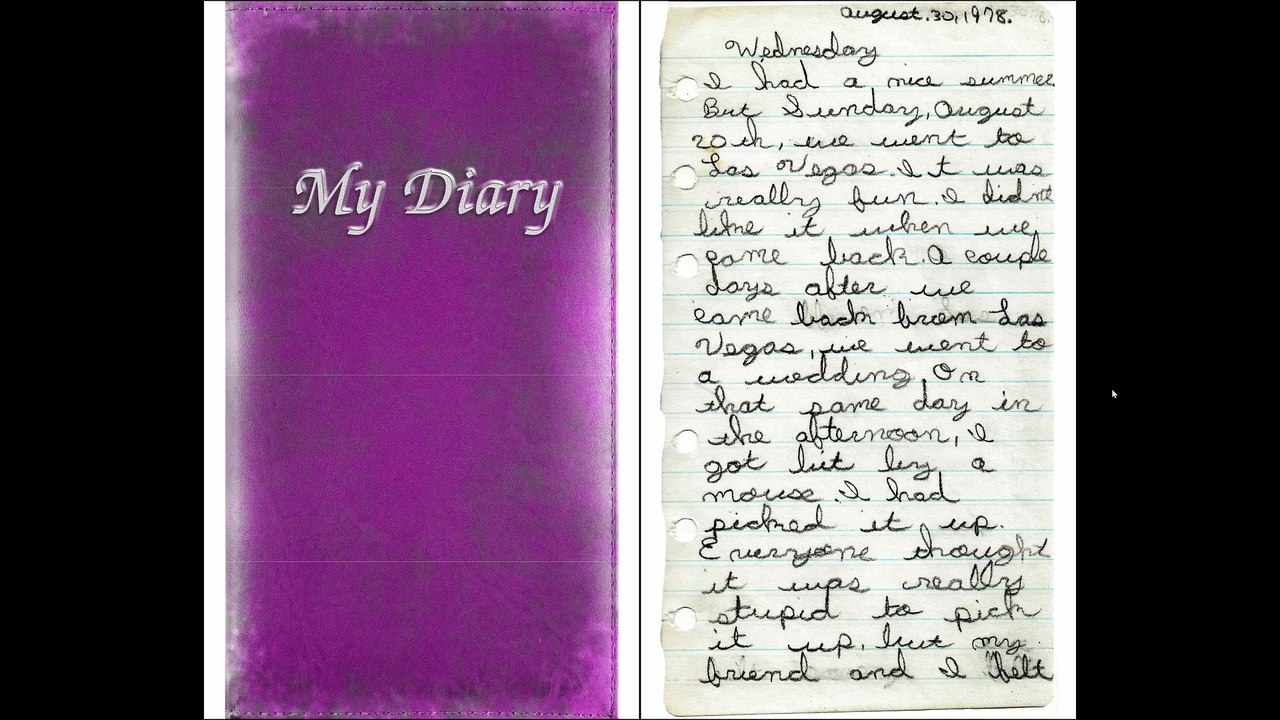 My Diary
August.30,1978.
Wednesday
I had a nice summer.
But Sunday, August
20th, we went to
Las Vegas. It was
really fun. I didn't
like it when we
came back. A couple
days after we
came back from Las
Vegas, we went to
a wedding. On
that same day in
the afternoon, I
got bit by a
mouse. I had
picked it up.
Everyone thought
it was really
stupid to pick
it up, but my
friend and I felt